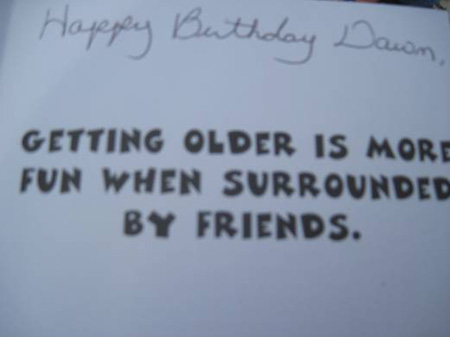 Happy Birthday Dawn,
GETTING OLDER IS MORE
FUN WHEN SURROUNDED
BY FRIENDS.